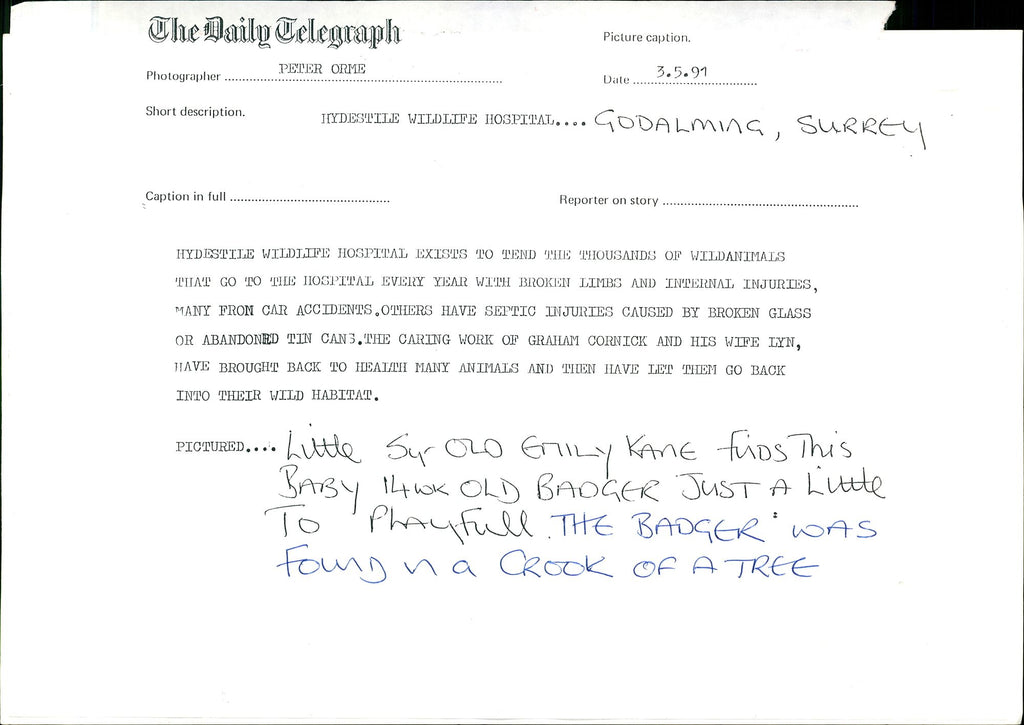 The Daily Telegraph
Picture caption.
Photographer PETER ORME
Date 3.5.91
Short description. HYDESTILE WILDLIFE HOSPITAL.... GODALMING, SURREY
Caption in full
Reporter on story
HYDESTILE WILDLIFE HOSPITAL EXISTS TO TEND THE THOUSANDS OF WILDANIMALS
THAT GO TO THE HOSPITAL EVERY YEAR WITH BROKEN LIMBS AND INTERNAL INJURIES,
MANY FROM CAR ACCIDENTS.OTHERS HAVE SEPTIC INJURIES CAUSED BY BROKEN GLASS
OR ABANDONED TIN CANS.THE CARING WORK OF GRAHAM CORNICK AND HIS WIFE LYN,
HAVE BROUGHT BACK TO HEALTH MANY ANIMALS AND THEN HAVE LET THEM GO BACK
INTO THEIR WILD HABITAT.
PICTURED.... Little 5yr OLD EMILY KANE finds This
BABY 14wk OLD BADGER JUST A Little
To Playfull. THE BADGER WAS
Found in a CROOK OF A TREE